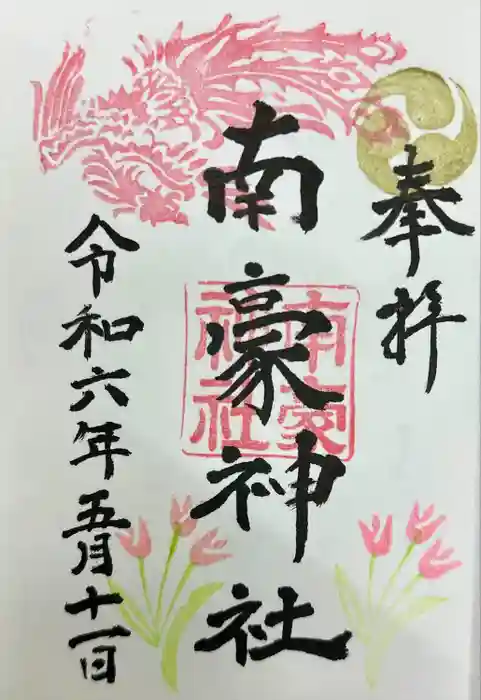 奉拝
南豪神社
南豪神社
令和六年五月十一日